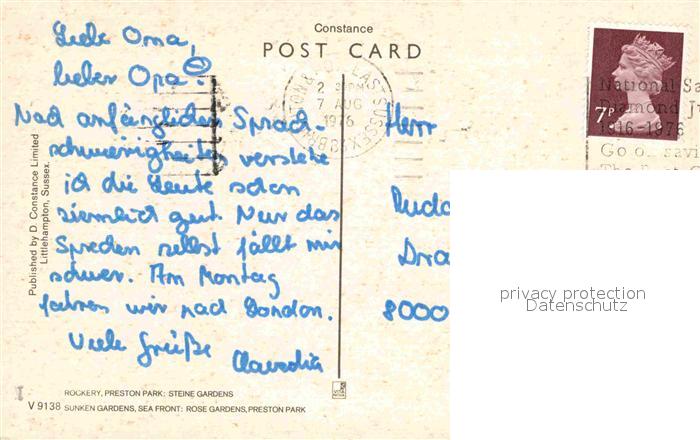 Constance
POST CARD
Liebe Oma,
lieber Opa!
Nach anfänglichen Sprach-
schwierigkeiten verstehe
ich die Leute schon
ziemlich gut. Nur das
Sprechen selbst fällt mir
schwer. Am Montag
fahren wir nach London.
Viele Grüße Claudia
Published by D. Constance Limited
Littlehampton, Sussex.
2 PM
7 AUG
1976
7P
National Sa
Diamond Ju
1916-1976
Go on savi
Herr
8000
privacy protection
Datenschutz
ROCKERY, PRESTON PARK: STEINE GARDENS
V 9138 SUNKEN GARDENS, SEA FRONT: ROSE GARDENS, PRESTON PARK